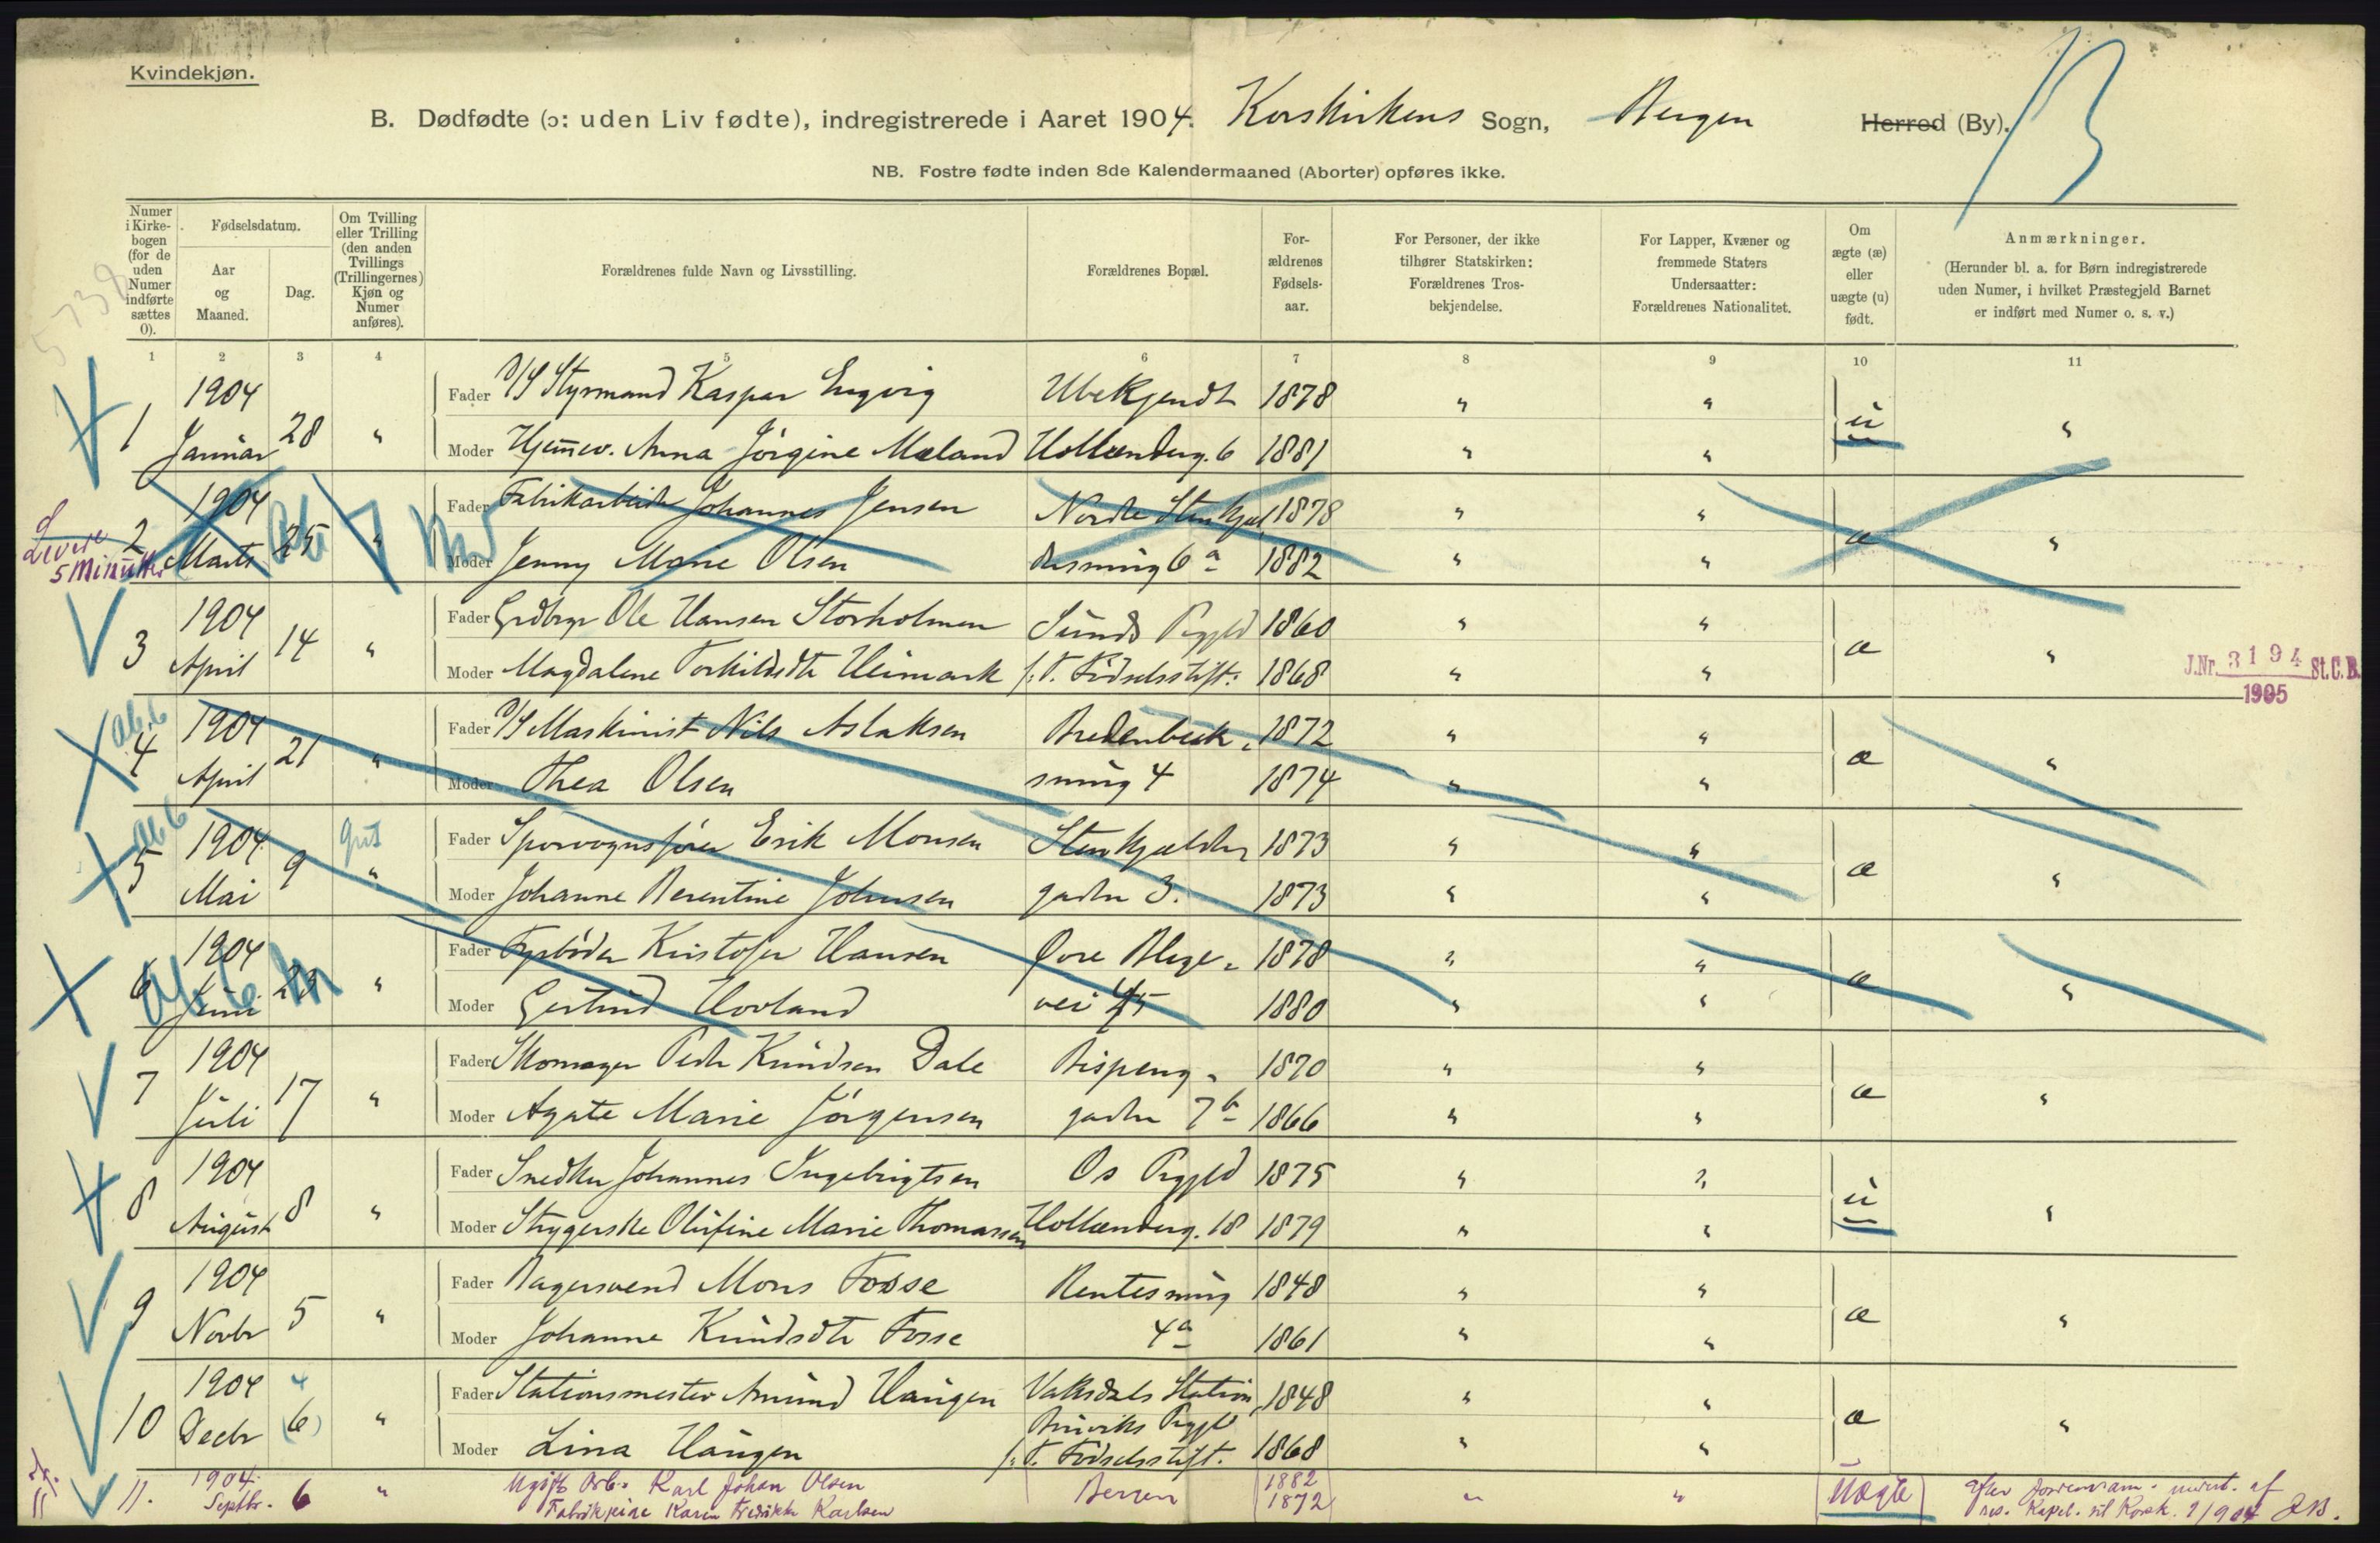 Kvindekjøn.
B. Dødfødte (ɔ: uden Liv fødte), indregistrerede i Aaret 1904. Korskirkens Sogn, Bergen Herred (By).
NB. Fostre fødte inden 8de Kalendermaaned (Aborter) opføres ikke.
Numer i Kirkebogen (for de uden Numer indførte sættes 0).
Fødselsdatum.
Aar og Maaned.
Dag.
Om Tvilling eller Trilling (den anden Tvillings (Trillingernes) Kjøn og Numer anføres).
Forældrenes fulde Navn og Livsstilling.
Forældrenes Bopæl.
For-ældrenes Fødsels-aar.
For Personer, der ikke tilhører Statskirken: Forældrenes Tros-bekjendelse.
For Lapper, Kvæner og fremmede Staters Undersaatter: Forældrenes Nationalitet.
Om ægte (æ) eller uægte (u) født.
Anmærkninger.
(Herunder bl. a. for Børn indregistrerede uden Numer, i hvilket Præstegjeld Barnet er indført med Numer o. s. v.)
1 2 3 4 5 6 7 8 9 10 11
1904 Fader D/S Styrmand Kaspar Engvig Ubekjendt 1878 " "
1 Januar 28 " Moder Hjemmev. Anna Jörgine Mæland Hollænderg. 6 1881 " " u "
1904 Fader Fabrikarbeider Johannes Jensen Nordre Stenkjel 1878 " "
2 Marts 25 " Moder Jenny Marie Olsen 6a 1882 " " æ "
Levede 5 Minutter
1904 Fader Grdbrgr Ole Hansen Storholmen Sunds Prgjeld 1860 " "
3 April 14 " Moder Magdalene Torkildsdtr Heimark p. T. Födselsstift. 1868 " " æ "
J.Nr. 3194 St.C.B.
1905
Ab. 6
1904 Fader D/S Maskinist Nils Aslaksen Bredenbeck- 1872 " "
4 April 21 " Moder Thea Olsen smug 4 1874 " " æ "
Ab 6
1904 gut Fader Sporvognsförer Erik Monsen Stenkjælder 1873 " "
5 Mai 9 " Moder Johanne Berentine Johnsen gaden 3. 1873 " " æ "
1904 Fader Fyrböder Kristofer Hansen Övre Blege- 1878 " "
6 Juni 23 " Moder Gertrud Hovland vei 45 1880 " " æ "
Ab. 6
1904 Fader Skomager Peder Knudsen Dale Bispeng- 1870 " "
7 Juli 17 " Moder Agate Marie Jörgensen gaden 7b 1866 " " æ "
1904 Fader Snedker Johannes Ingebrigtsen Os Prgjeld 1875 " "
8 August 8 " Moder Strygerske Olufine Marie Thomassen Hollænderg. 18 1879 " " u "
1904 Fader Bagersvend Mons Fosse Rentesmug 1848 " "
9 Novbr 5 " Moder Johanne Knudsdtr Fosse 4a 1861 " " æ "
1904 4 Fader Stationsmester Amund Haugen Vaksdals Station, 1848 " "
Bruviks Prgjld
10 Decbr (6) " Moder Lina Haugen p. T. Födselsstift. 1868 " " æ "
11. 1904. Septbr. 6 " Ugift Arb. Karl Johan Olsen Bergen 1882 " " Uægte
Fabrikpige Karen Fredrikke Karlsen 1872